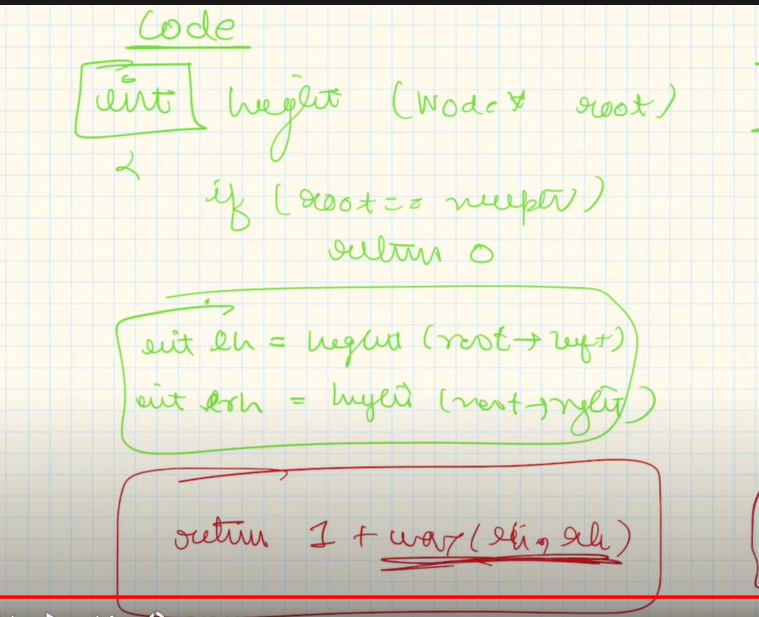 Code
int height (Node* root)
{
if (root == nullptr)
return 0
int lh = height (root → left)
int rh = height (root → right)
return 1 + max(lh, rh)